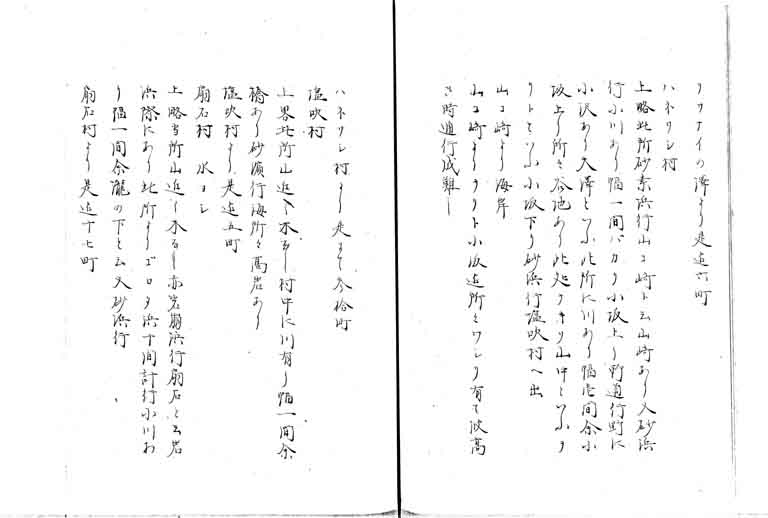 ヲワナイの澤より是迄六町
ハネサシ村
上略此所砂素浜行山コ崎ト云山崎あり大砂浜
行小川あり幅一間バカリ小坂上り野道行野に
小沢あり大澤といふ此所に川あり幅壱間余小
坂上り所々谷地あり此処ヲキリ山中といふ
ウトといふ小坂下り砂浜行塩吹村へ出
山コ崎より海岸
山コ崎よりウト小浜迄所々ワシリ有て波高
き時通行成難し
ハネサシ村より是まて参拾町
塩吹村
上畧此所山近く木なし村中に川有り幅一間余
橋あり砂濱行海所々高岩あり
塩吹村より是迄五町
扇石村 水ヨシ
上略当所山近く木なし赤岩崩浜行扇石と云岩
浜際にあり此所よりゴロタ浜十間計行小川わ
り幅一間余瀧の下と云大砂浜行
扇石村より是迄十七町